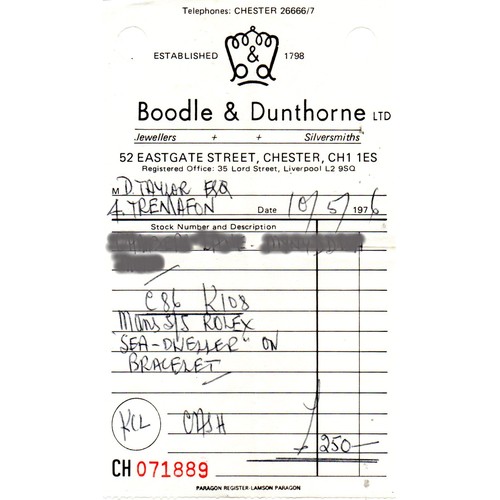 Telephones: CHESTER 26666/7
ESTABLISHED 1798
Boodle & Dunthorne LTD
Jewellers + + Silversmiths
52 EASTGATE STREET, CHESTER, CH1 1ES
Registered Office: 35 Lord Street, Liverpool L2 9SQ
M D TAYLOR ESQ
4. TREMAFON Date 10/5/1976
Stock Number and Description
C86 K108
Mans S/S ROLEX
"SEA-DWELLER" ON
BRACELET
KCL CASH
250—
CH 071889
PARAGON REGISTER-LAMSON PARAGON